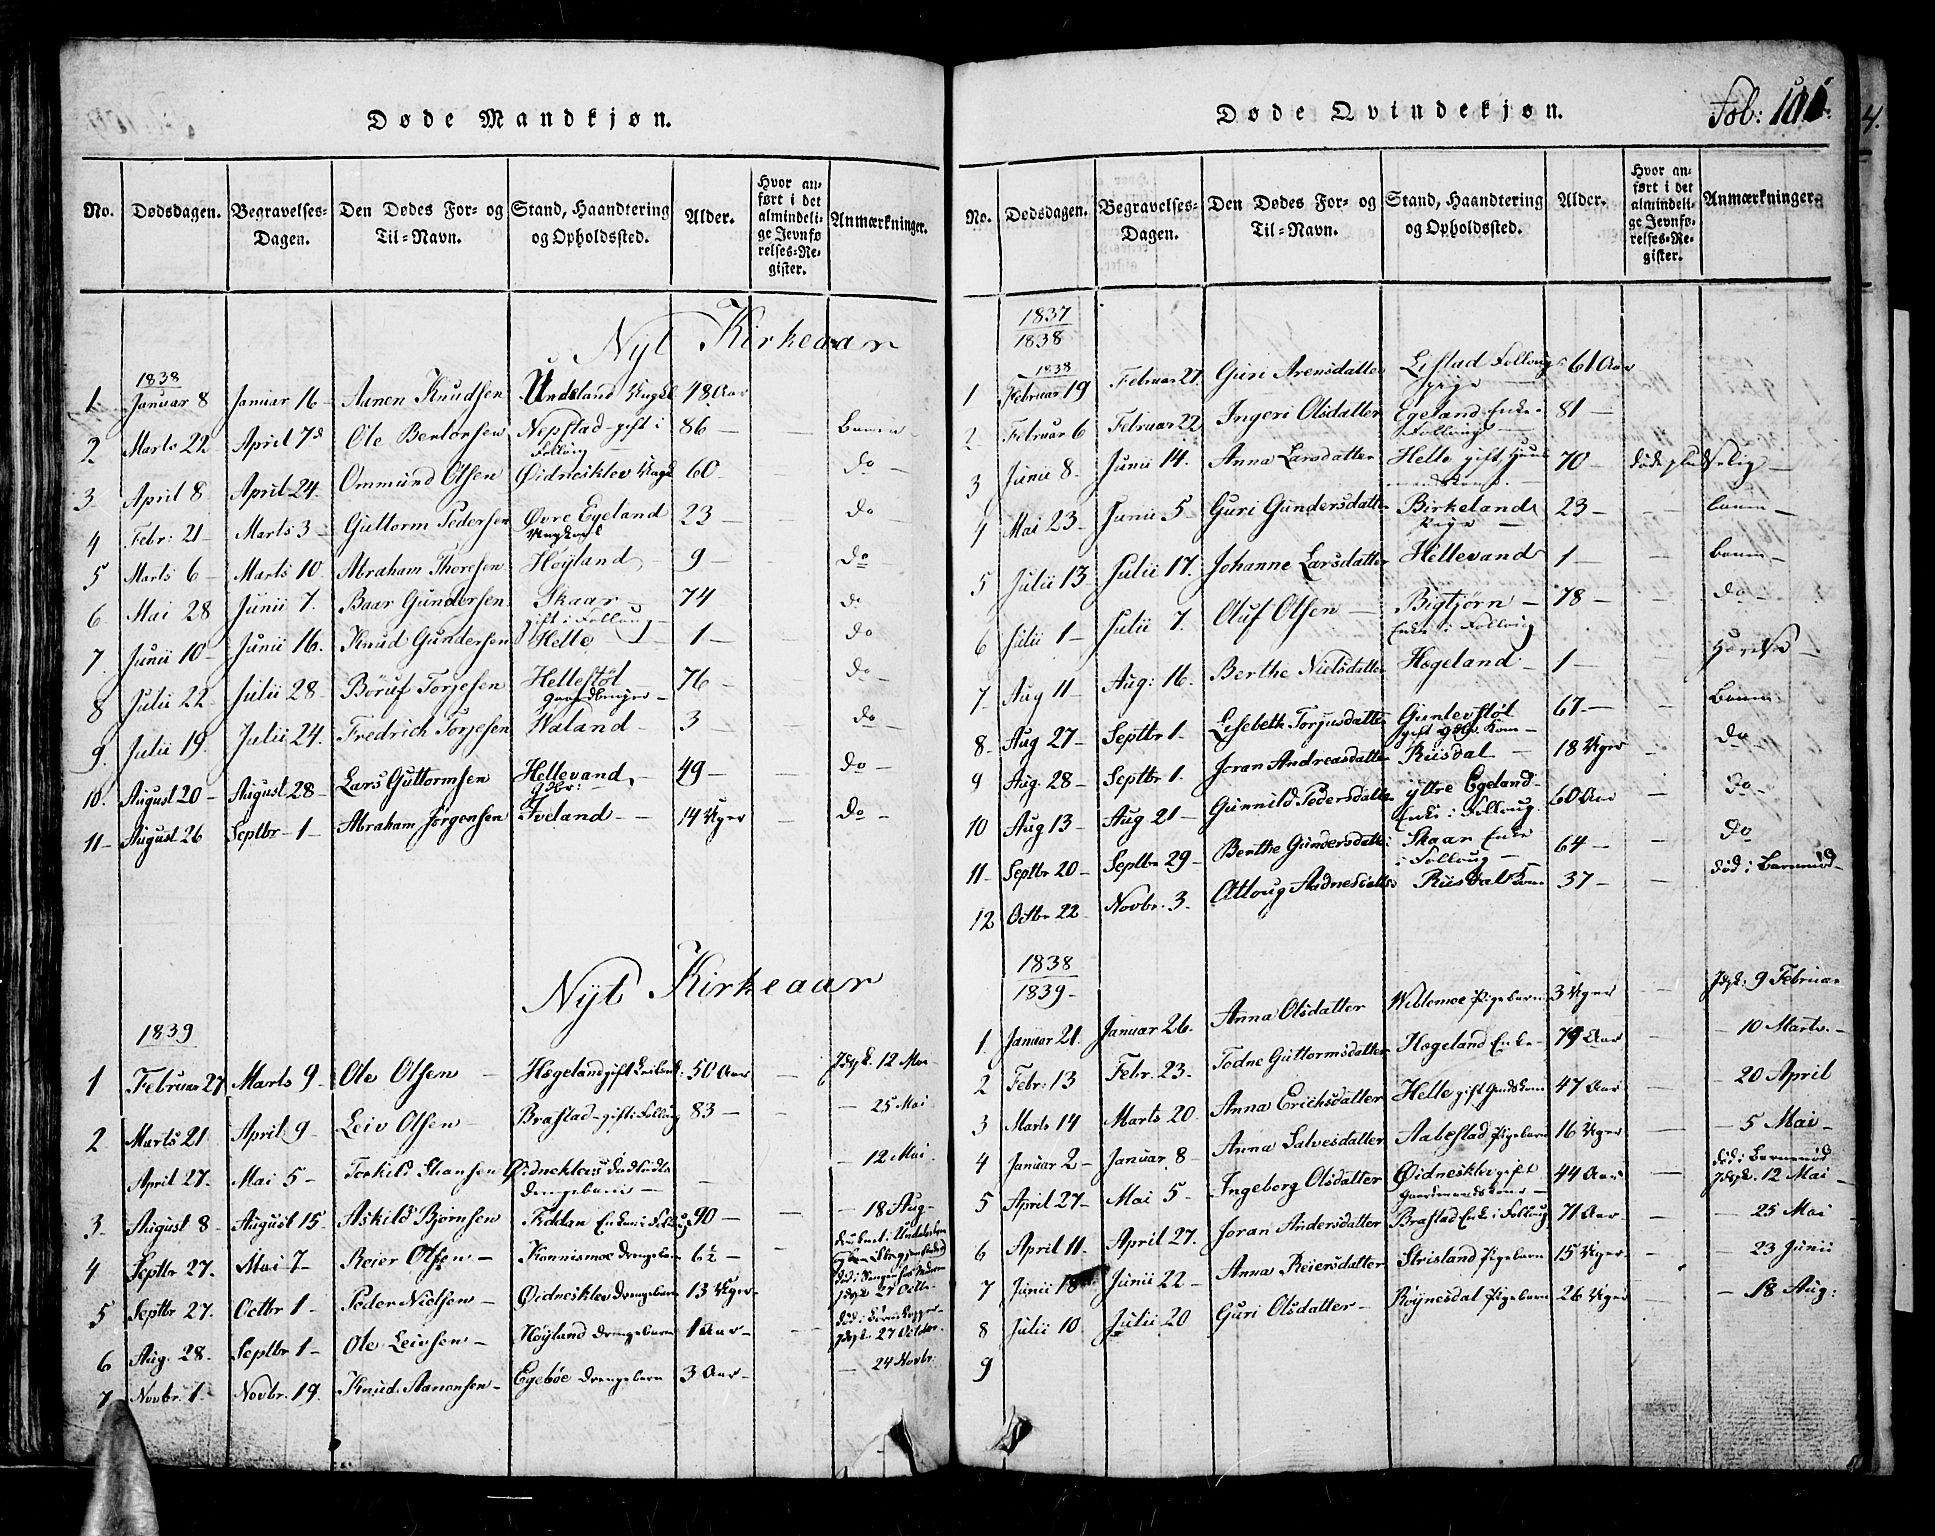 Døde Mandkjøn.
No. Dødsdagen. Begravelses-Dagen. Den Dødes For- og Til-Navn. Stand, Haandtering og Opholdssted. Alder. Hvor anført i det almindelige Jevnførelses-Register. Anmærkninger.
Nyt Kirkeaar
1838
1 Januar 8 Januar 16 Aanen Knudsen Undeland 48 Aar
2 Marts 22 April 7d Ole Berlorsen Nepstad gift i Follaug 86
3 April 8 April 24 Ommund Olsen Øidnesklev 60 do
4 Febr: 21 Marts 3 Guttorm Pedersen Øvre Egeland Ungkarl 23 do
5 Marts 6 Marts 10 Abraham Thoresen Høyland 9 do
6 Mai 28 Junii 7. Baar Gundersen Skaar gift i Follaug 74 do
7. Junii 10 Junii 16. Knud Gundersen Helle 1 do
8 Julii 22 Julii 28 Børuf Torjesen Hellestøl 76 do
9. Julii 19. Julii 24. Fredrich Torjesen Waland 3 do
10. August 20 August 28 Lars Guttormsen Hellevand 49 do
11 August 26 Septbr 1 Abraham Jørgensen Iveland 14 Uger do
Nyt Kirkeaar
1839
1 Februar 27 Marts 9 Ole Olsen Hægeland gift 50 Aar 12 Mai
2 Marts 21 April 9 Leiv Olsen Brastad gift i Follaug 83 25 Mai
April 27. Mai 5 Øidneklev Drengebarn 12 Mai.
3 August 8 August 15 Askild Bjørnsen Foddan Enkem: i Follaug 90 18 Aug
4 Septbr 27. Mai 7 Reier Olsen Konnismoe Drengebarn 6½
5 Septbr 27. Octbr 1 Peder Nielsen Øidnesklev Drengebarn 13 Uger 27 Octbr
6 Aug. 28. Septbr 1 Ole Leivsen Høyland Drengebarn 1 Aar 27 October.
7 Novbr. 1. Novbr. 19. Knud Aanonsen Egebøe Drengebarn 3 Aar 24 Novbr:
Døde Qvindekjøn.
Fol:
4.
No. Dødsdagen. Begravelses-Dagen. Den Dødes For- og Til-Navn. Stand, Haandtering og Opholdssted. Alder. Hvor anført i det almindelige Jevnførelses-Register. Anmærkninger.
1837
1838
1838
1 Februar 19 Februar 27. Guri Arensdatter Follaug Pige 61 Aar
2 Februar 6 Februar 22 Ingeri Olsdatter Egeland Enke Follaug 81
3 Junii 8. Junii 14. Anna Larsdatter Helle gift Huusmandskone 70 døde pludselig
4 Mai 23 Junii 5 Guri Gundersdatter Birkeland Pige 23
5 Julii 13 Julii 17. Johanne Larsdatter Hellevand 1
6 Julii 1 Julii 7. Oluf Olsen Bigtjørn Enke i Follaug 78 do
7 Aug 11 Aug: 16. Berthe Nielsdatter Hægeland 1
8 Aug 27 Septbr 1. Lisebeth Torjusdatter Gunlevstøl gift 67
9 Aug. 28 Septbr 1. Joran Andreasdatter Riisdal 18 Uger do
10 Aug 13 Aug 21 Gunnild Pedersdatter ytre Egeland Enke i Follaug. 60 Aar do
11 Septbr 20 Septbr 29 Berthe Gundersdatter Skaar Enke i Follaug 64 do
12 Octbr 22 Novbr. 3. Attoug Aadnesdatter Riisdal Kone 37 død i Barnenød
1838
1839
1. Januar 21. Januar 26. Anna Olsdatter Weblemoe Pigebarn 3 Uger 9 Februar
2 Febr: 13 Febr. 23. Todne Guttormsdatter Hægeland Enke 79 Aar 10 Marts.
3 Marts 14 Marts 20 Anna Ericksdatter Helle gift 47 Aar 20 April
4 Januar 2 Januar 8 Anna Salvesdatter Aabestad Pigebarn 16 Uger 5 Mai
5 April 27 Mai 5 Ingeborg Olsdatter Øidnesklev gift Gaardmandskone 44 Aar død i Barnenød 12 Mai
6 April 11. April 27. Joran Andersdatter Brastad Enke i Follaug 71 Aar 25 Mai
7 Junii 18 Junii 22 Anna Reiersdatter Strisland Pigebarn 15 Uger 23 Junii
8 Julii 10 Julii 20 Guri Olsdatter Røynesdal Pigebarn 26 Uger 18 Aug:
9